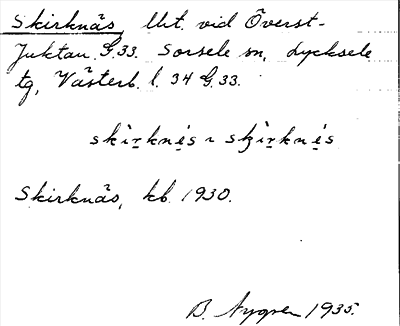 Skirknäs, llit. vid Överst-
Juktan. G.33. Sorsele sn, Lycksele
tg, Västerb. l. 34 G.33.
skìrknés ~ sʒìrknés
Skirknäs, kb. 1930.
B. Nygren 1935.